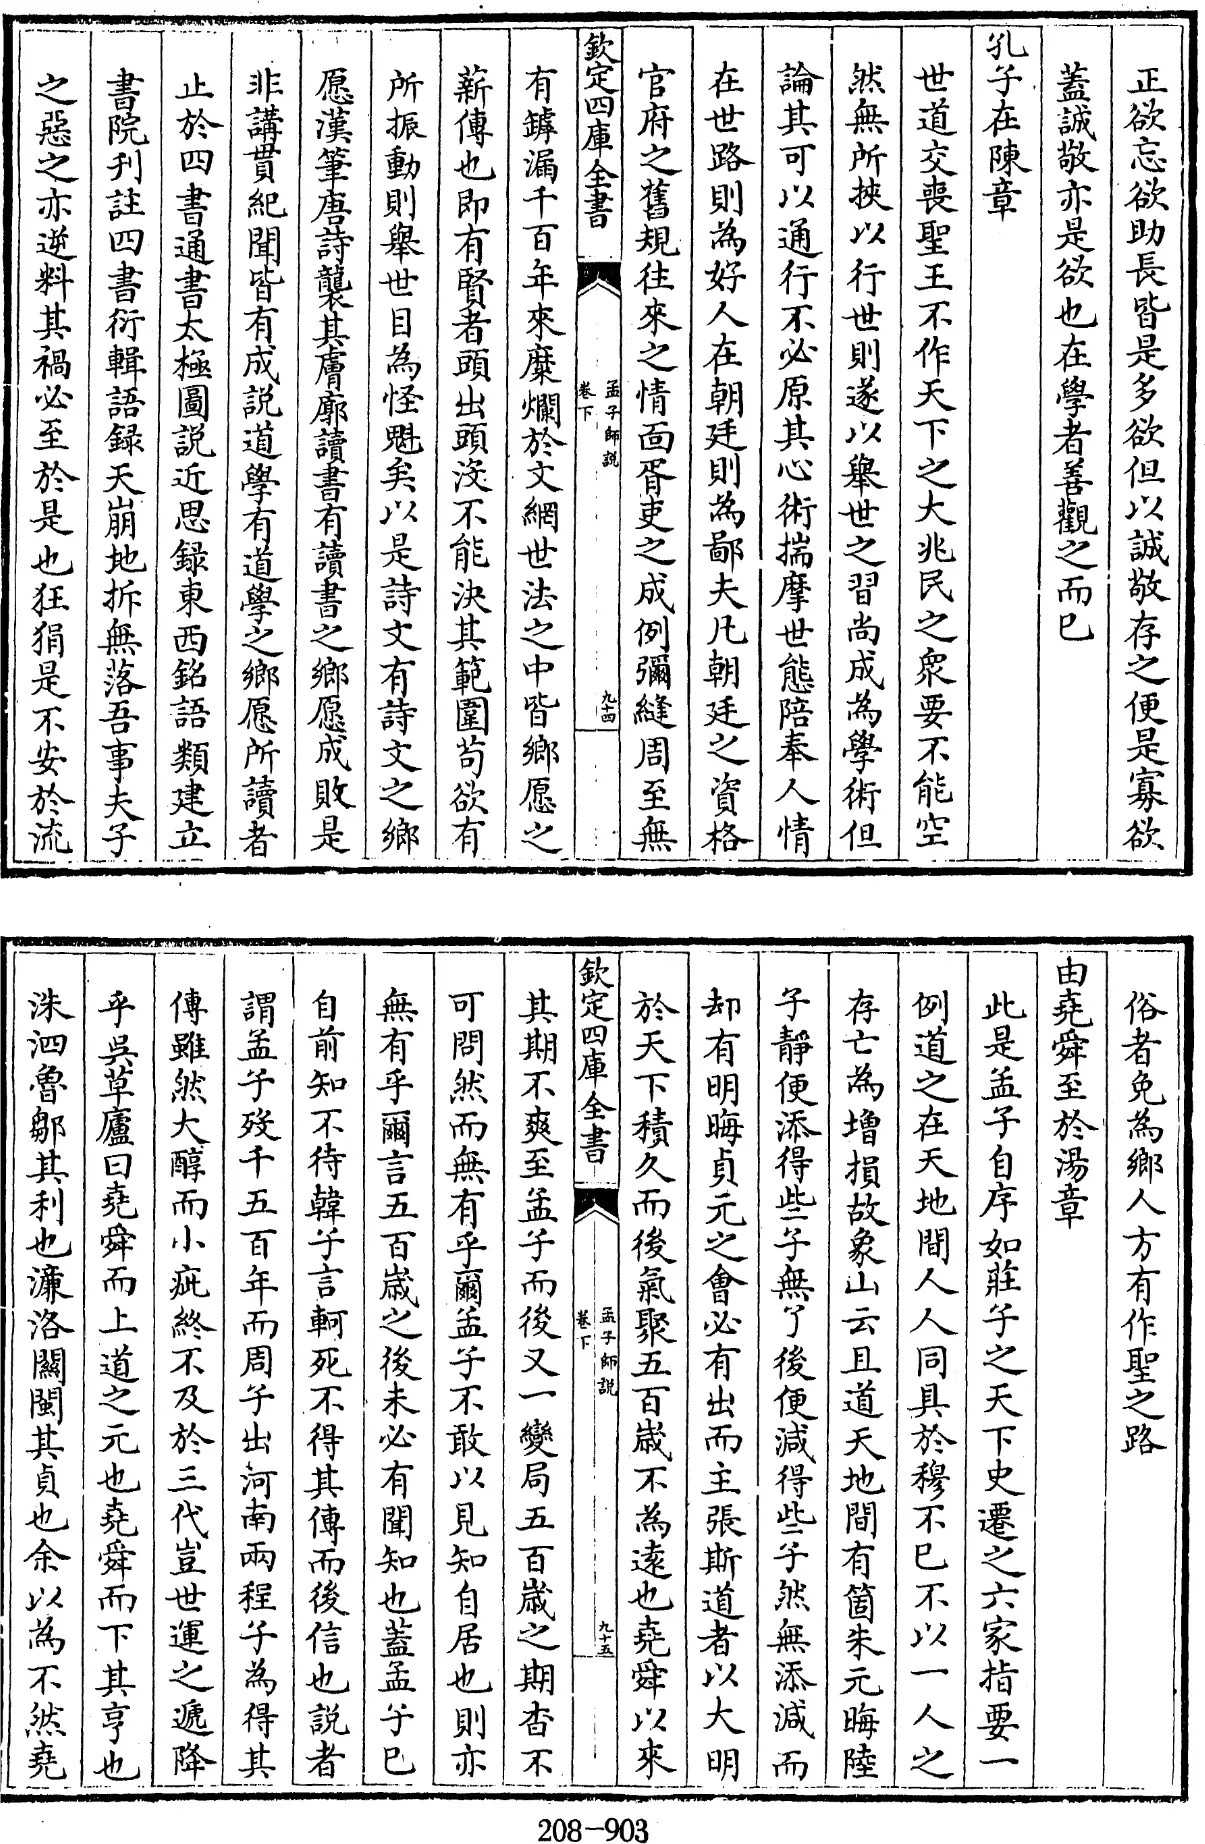 正欲忘欲助長皆是多欲但以誠敬存之便是寡欲
蓋誠敬亦是欲也在學者善觀之而已
孔子在陳章
世道交喪聖王不作天下之大兆民之衆要不能空
然無所挾以行世則遂以舉世之習尚成為學術但
論其可以通行不必原其心術揣摩世態陪奉人情
在世路則為好人在朝廷則為鄙夫凡朝廷之資格
官府之舊規往來之情面胥吏之成例彌縫周至無
欽定四庫全書
孟子師説
卷下
九十四
有罅漏千百年來糜爛於文網世法之中皆鄉愿之
薪傳也即有賢者頭出頭沒不能決其範圍苟欲有
所振動則舉世目為怪魁矣以是詩文有詩文之鄉
愿漢筆唐詩襲其膚廓讀書有讀書之鄉愿成敗是
非講貫紀聞皆有成説道學有道學之鄉愿所讀者
止於四書通書太極圖説近思録東西銘語類建立
書院刊註四書衍輯語録天崩地拆無落吾事夫子
之惡之亦逆料其禍必至於是也狂狷是不安於流
俗者免為鄉人方有作聖之路
由堯舜至於湯章
此是孟子自序如莊子之天下史遷之六家指要一
例道之在天地間人人同具於穆不已不以一人之
存亡為增損故象山云且道天地間有箇朱元晦陸
子靜便添得些子無了後便減得些子然無添減而
却有明晦貞元之會必有出而主張斯道者以大明
於天下積久而後氣聚五百歲不為遠也堯舜以來
欽定四庫全書
孟子師説
卷下
九十五
其期不爽至孟子而後又一變局五百歲之期杳不
可問然而無有乎爾孟子不敢以見知自居也則亦
無有乎爾言五百歲之後未必有聞知也蓋孟子已
自前知不待韓子言軻死不得其傳而後信也説者
謂孟子歿千五百年而周子出河南兩程子為得其
傳雖然大醇而小疵終不及於三代豈世運之遞降
乎吳草廬曰堯舜而上道之元也堯舜而下其亨也
洙泗魯鄒其利也濂洛關閩其貞也余以為不然堯
208-903